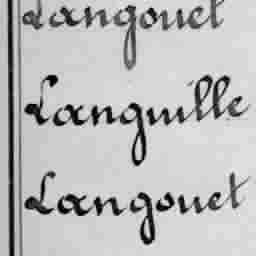 Langouet
Languille
Langouet